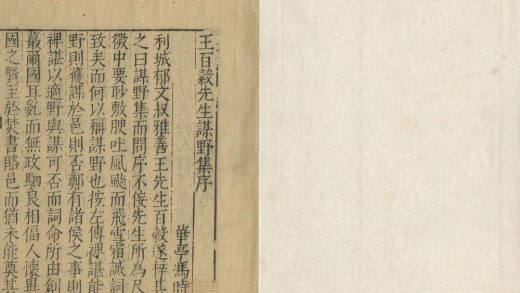 王百穀先生謀野集序
華亭馮時
利城郁文叔雅善王先生百穀遂梓其
之曰謀野集而問序不佞先生所為尺
微中要眇敷腴吐風飈而飛雪霜誠詞
致矣而何以稱謀野也按左傳裨諶能
野則獲謀於邑則否鄭有諸侯之事則
裨諶以適野與謀可否而詞命所由創
蕞爾國耳氄而無政駟良相傾人懷異
國之賢至於焚書賂邑而猶未能奠其